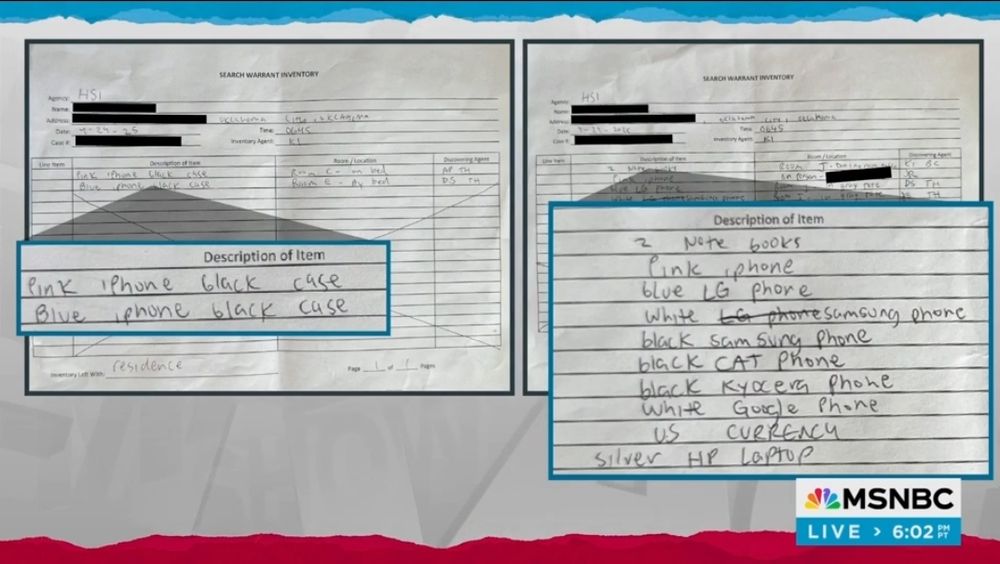 SEARCH WARRANT INVENTORY
Agency: HSI
Name:
Address: OKLAHOMA CITY, OKLAHOMA
Date: 4-24-25 Time: 0645
Case #: Inventory Agent: K1
Line Item Description of Item Room / Location Discovering Agent
Pink iphone black case Room C - on bed AP TH
Blue iphone black case Room E - By bed DS TH
Description of Item
Pink iPhone black case
Blue iphone black case
Inventory Left With: residence Page 1 of 1 Pages
SEARCH WARRANT INVENTORY
Agency: HSI
Name:
Address: , Oklahoma City, Oklahoma
Date: Time: 0645
Case #: Inventory Agent: K1
Line Item Description of Item Room / Location Discovering Agent
2 Note books Room J - K1 BC
Pink iphone on person -
blue LG phone DS TH
white LG phone samsung phone TH
Description of Item
2 Note books
Pink iphone
blue LG phone
white LG phone samsung phone
black samsung phone
black CAT Phone
black Kyocera Phone
white Google Phone
US CURRENCY
silver HP Laptop
MSNBC
LIVE > 6:02 PM PT